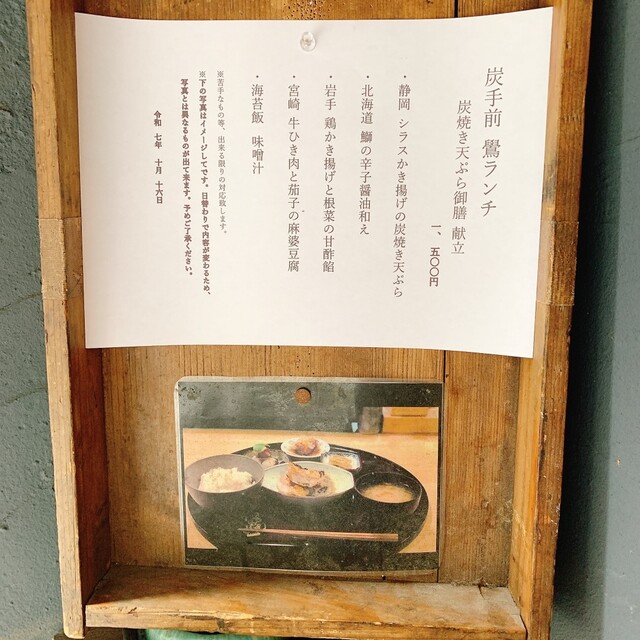 炭手前 鷽ランチ
炭焼き天ぷら御膳 献立
一、五〇〇円
・静岡 シラスかき揚げの炭焼き天ぷら
・北海道 鰤の辛子醤油和え
・岩手 鶏かき揚げと根菜の甘酢餡
・宮崎 牛ひき肉と茄子の麻婆豆腐
・海苔飯 味噌汁
※苦手なもの等、出来る限りの対応致します。
※下の写真はイメージしてです。日替わりで内容が変わるため、
写真とは異なるものが出て来ます。予めご了承ください。
令和 七年 十月 十六日